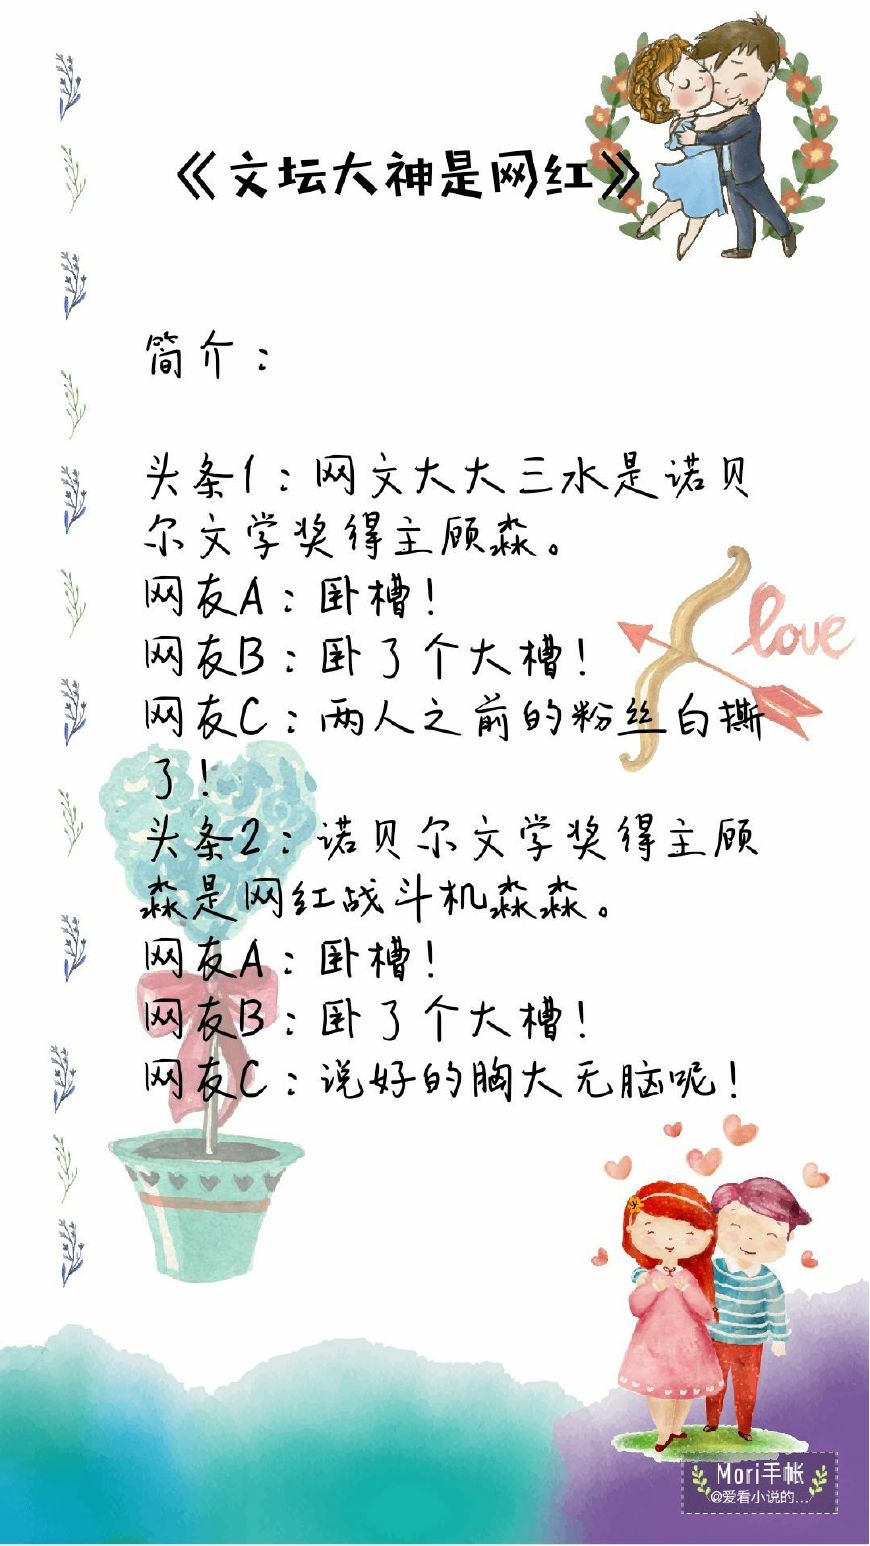 《文坛大神是网红》
简介：
头条1：网文大大三水是诺贝
尔文学奖得主顾淼。
网友A：卧槽！
网友B：卧了个大槽！
网友C：两人之前的粉丝白撕
了！
头条2：诺贝尔文学奖得主顾
淼是网红战斗机淼淼。
网友A：卧槽！
网友B：卧了个大槽！
网友C：说好的胸大无脑呢！
love
Mori手帐
@爱看小说的...